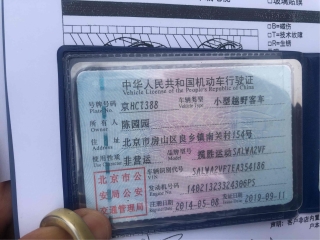 玻璃贴膜
B=刮伤
T=技术故障
R=生锈
中华人民共和国机动车行驶证
Vehicle License of the People's Republic of China
号牌号码 京HCT388 车辆类型 小型越野客车
Plate No. Vehicle Type
所有人 陈园园
Owner
住址 北京市房山区良乡镇南
Address
使用性质 非营运 品牌型号 揽胜运动SALWA2VF
Use Character Model
北京市公
安局公安
交通管理局
车辆识别代号 SALWA2VF7EA354186
VIN
发动机号码 14021323324306PS
Engine No.
注册日期 2014-05-08 发证日期 2019-09-11
Register Date Issue Date